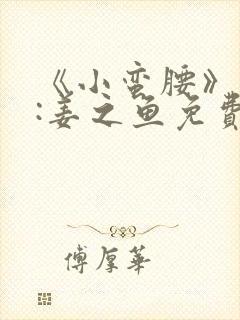 《小蛮腰》
:姜之鱼免費
傅厚華